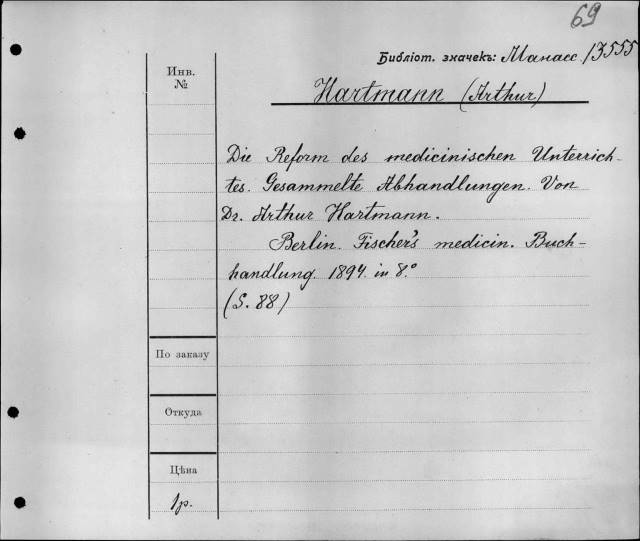 69
Библіот. значекъ: Манасс./3555
Инв.
№
Hartmann (Arthur)
Die Reform des medicinischen Unterrich-
tes. Gesammelte Abhandlungen. Von
Dr. Arthur Hartmann.
Berlin. Fischer's medicin. Buch-
handlung. 1894. in 8.°
(S. 88)
По заказу
Откуда
Цѣна
1р.